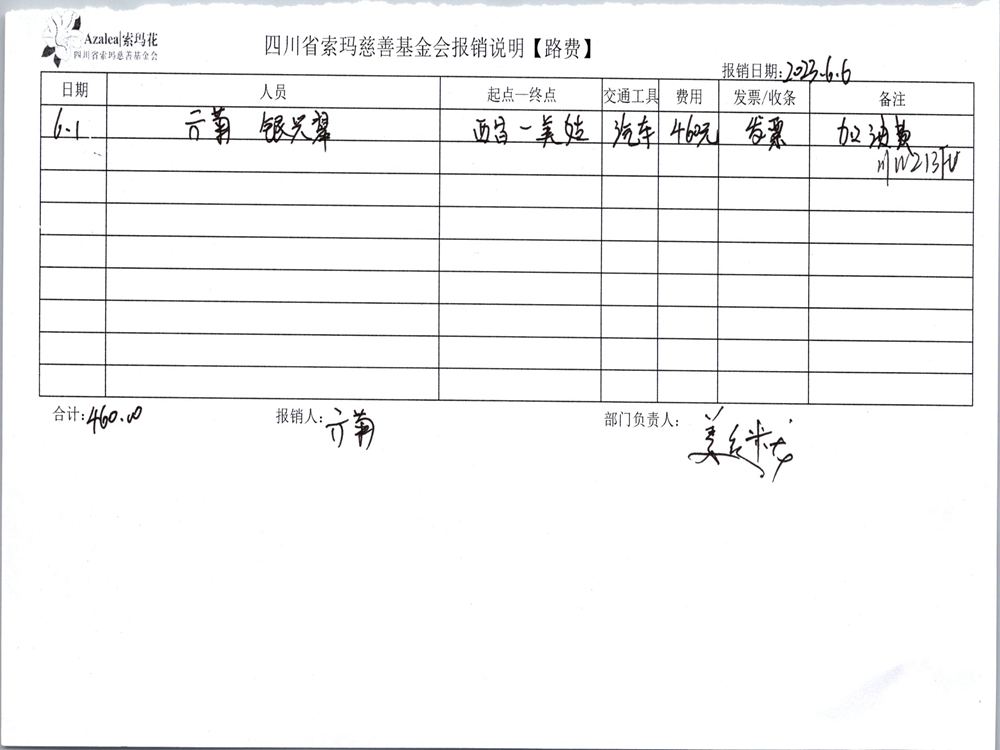 Azalea|索玛花
四川省索玛慈善基金会
四川省索玛慈善基金会报销说明【路费】
报销日期:2023.6.6
日期 人员 起点—终点 交通工具 费用 发票/收条 备注
6.1 亓菊 银兴翠 西昌—美姑 汽车 460元 发票 加油费
川W213FU
合计:460.00 报销人:亓菊 部门负责人: